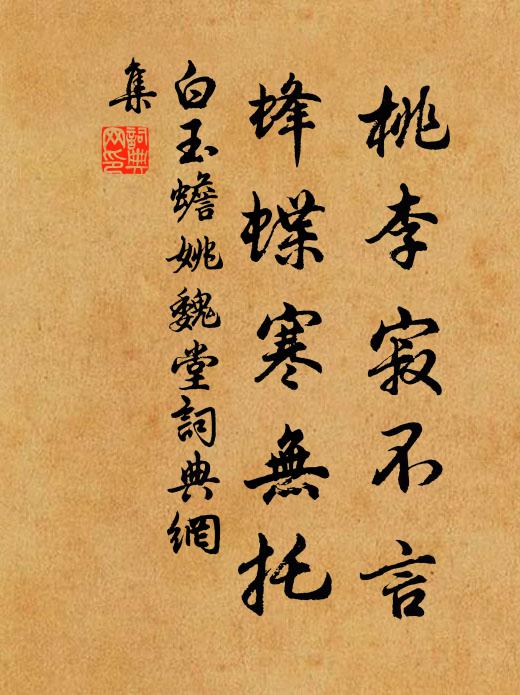 桃李寂不言
蜂蝶寒無托
白玉蟾姚魏堂詞典網
集
詞典
网印